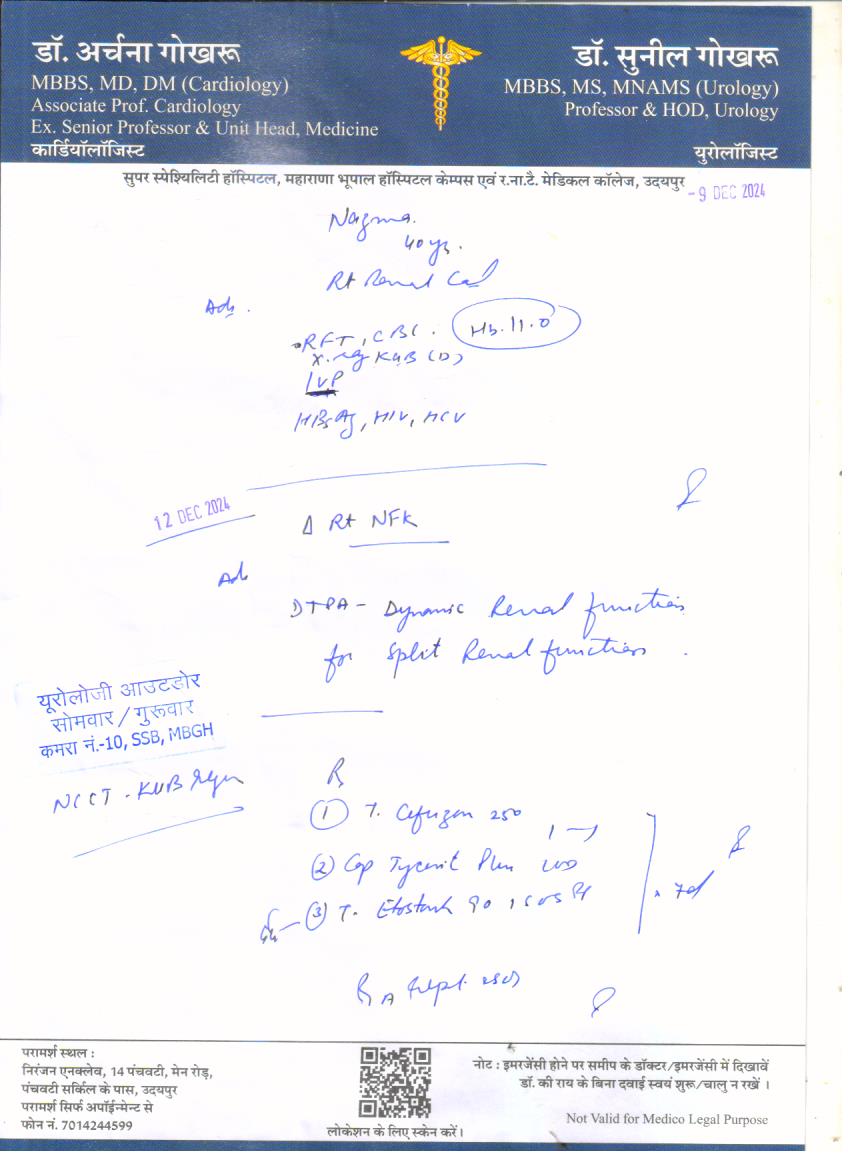 डॉ. अर्चना गोखरू
MBBS, MD, DM (Cardiology)
Associate Prof. Cardiology
Ex. Senior Professor & Unit Head, Medicine
कार्डियॉलॉजिस्ट
डॉ. सुनील गोखरू
MBBS, MS, MNAMS (Urology)
Professor & HOD, Urology
युरोलॉजिस्ट
सुपर स्पेश्यिलिटी हॉस्पिटल, महाराणा भूपाल हॉस्पिटल केम्पस एवं र.ना.टै. मेडिकल कॉलेज, उदयपुर
- 9 DEC 2024
Nagma.
40 yrs.
Rt Renal Cal
Adv.
RFT, CBC. Hb. 11.0
X-ray KUB (D)
IVP
HBsAg, HIV, HCV
12 DEC 2024
Δ Rt NFK
Adv
DTPA - Dynamic Renal function
for Split Renal function.
यूरोलोजी आउटडोर
सोमवार / गुरूवार
कमरा नं.-10, SSB, MBGH
NCCT - KUB
(1) T. 250
(2) Cap
(3) T. 90
x 7d
परामर्श स्थल :
निरंजन एनक्लेव, 14 पंचवटी, मेन रोड़,
पंचवटी सर्किल के पास, उदयपुर
परामर्श सिर्फ अपॉईन्मेन्ट से
फोन नं. 7014244599
लोकेशन के लिए स्केन करें।
नोट : इमरजेंसी होने पर समीप के डॉक्टर/इमरजेंसी में दिखावें
डॉ. की राय के बिना दवाई स्वयं शुरू/चालु न रखें ।
Not Valid for Medico Legal Purpose